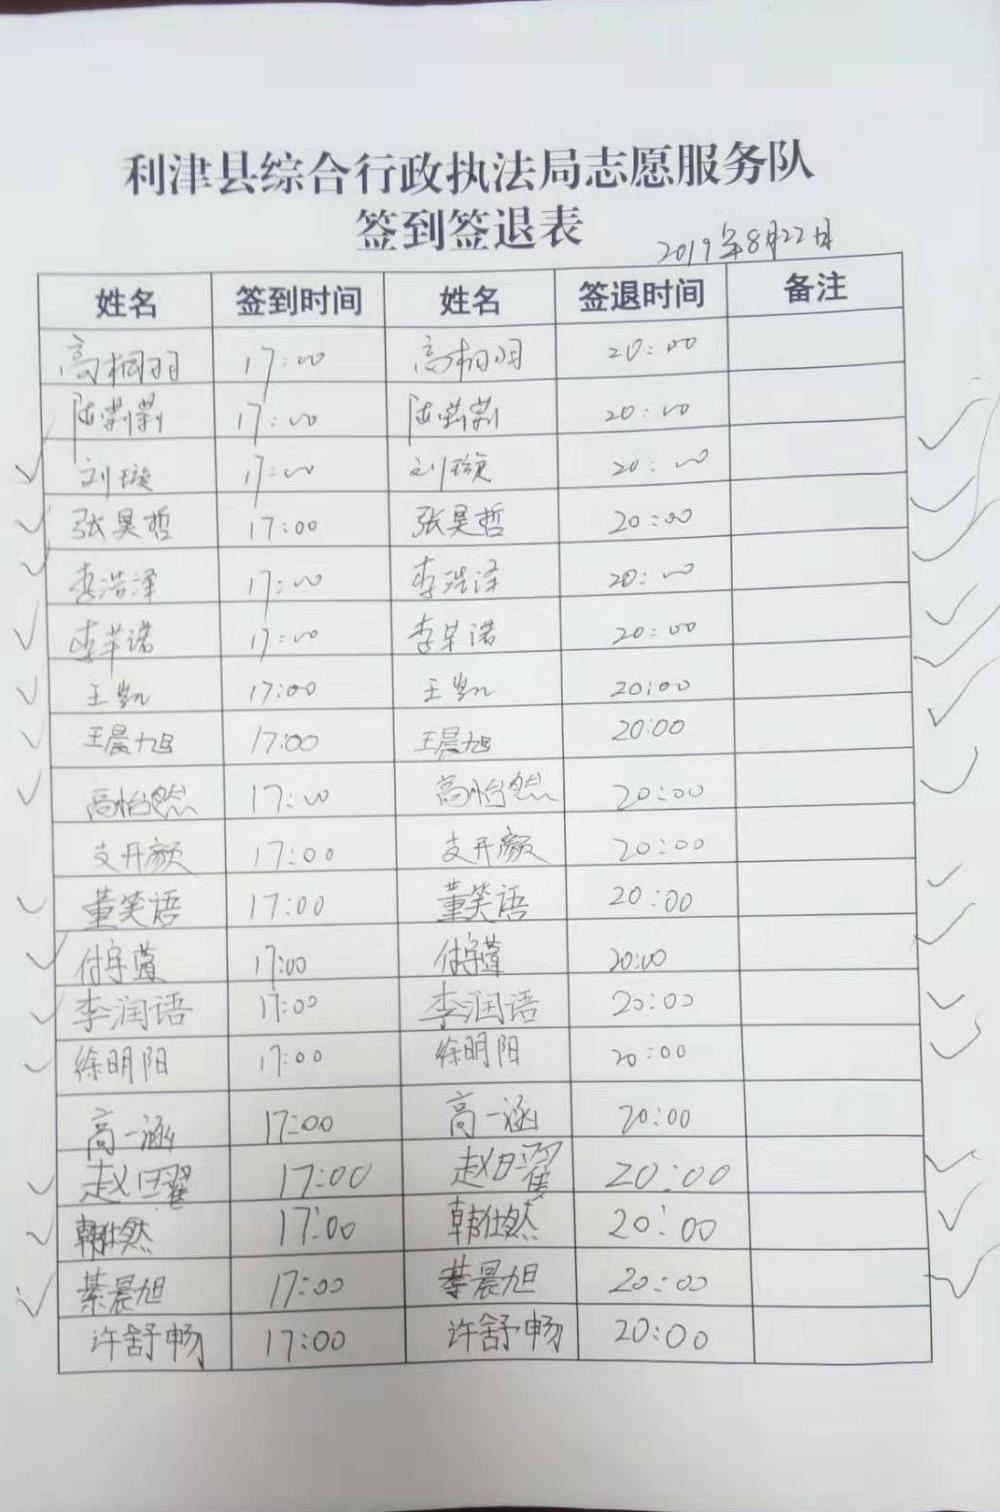 利津县综合行政执法局志愿服务队
签到签退表
2019年8月22日
姓名 签到时间 姓名 签退时间 备注
高桐羽 17:00 高桐羽 20:00
陆莉莉 17:00 陆莉莉 20:00
刘璇 17:00 刘璇 20:00
张昊哲 17:00 张昊哲 20:00
李浩泽 17:00 李浩泽 20:00
李芊诺 17:00 李芊诺 20:00
王凯 17:00 王凯 20:00
王晨旭 17:00 王晨旭 20:00
高怡然 17:00 高怡然 20:00
支开颜 17:00 支开颜 20:00
董笑语 17:00 董笑语 20:00
付宇萱 17:00 付宇萱 20:00
李润语 17:00 李润语 20:00
徐明阳 17:00 徐明阳 20:00
高一涵 17:00 高一涵 20:00
赵曜 17:00 赵曜 20:00
韩仕然 17:00 韩仕然 20:00
綦晨旭 17:00 綦晨旭 20:00
许舒畅 17:00 许舒畅 20:00